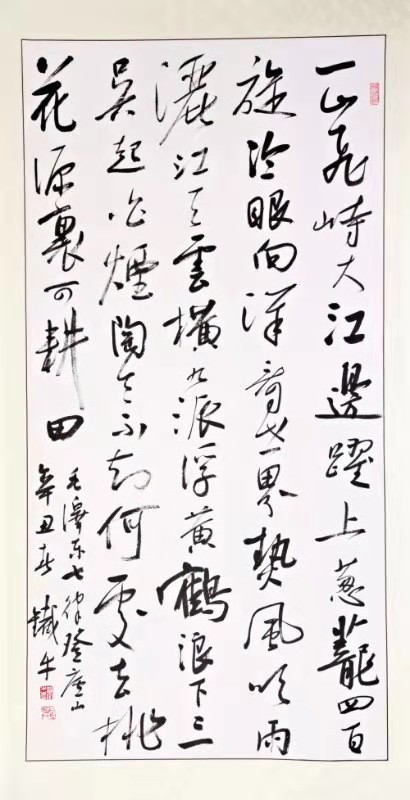 一山飛峙大江邊躍上葱蘢四百
旋冷眼向洋看世界熱風吹雨
灑江天雲橫九派浮黄鶴浪下三
吳起白煙陶令不知何處去桃
花源裏可耕田
毛澤东七律登廬山
辛丑春鐵牛